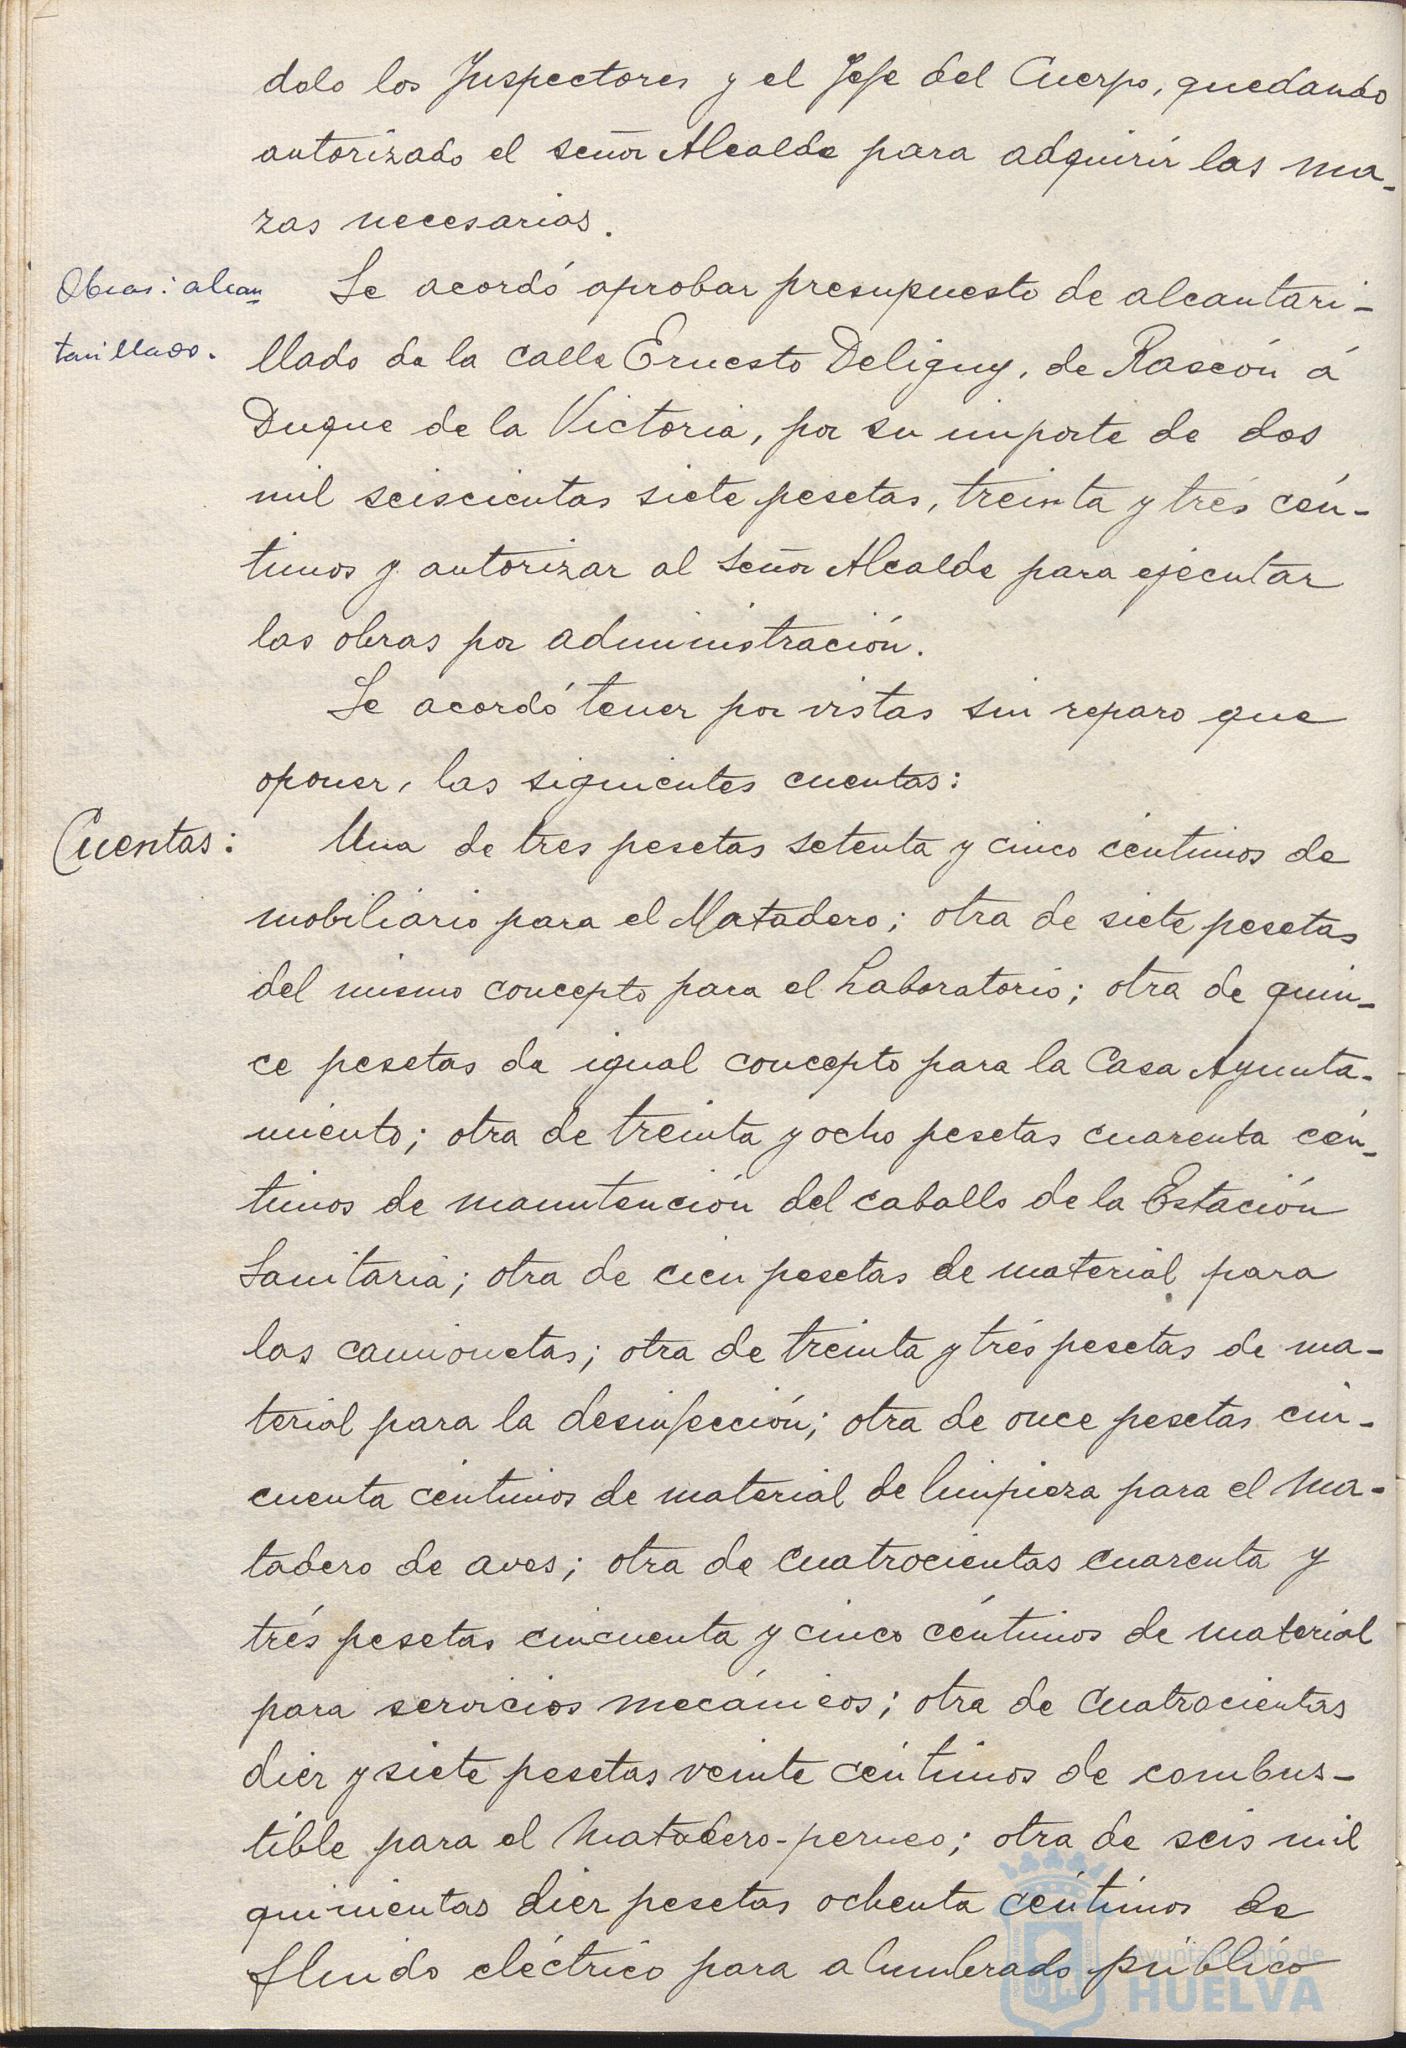 dolo los Inspectores y el Jefe del Cuerpo, quedando
autorizado el señor Alcalde para adquirir las ma-
zas necesarias.
Obras: alcan
tarillado.
Se acordó aprobar presupuesto de alcantari-
llado de la calle Ernesto Deligny, de Rascón á
Duque de la Victoria, por su importe de dos
mil seiscientas siete pesetas, treinta y trés cén-
timos y autorizar al señor Alcalde para ejecutar
las obras por administración.
Se acordó tener por vistas sin reparo que
oponer, las siguientes cuentas:
Cuentas:
Una de tres pesetas setenta y cinco céntimos de
mobiliario para el Matadero; otra de siete pesetas
del mismo concepto para el Laboratorio; otra de quin-
ce pesetas de igual concepto para la Casa Ayunta-
miento; otra de treinta y ocho pesetas cuarenta cén-
timos de manutención del caballo de la Estación
Sanitaria; otra de cien pesetas de material para
las camionetas; otra de treinta y trés pesetas de ma-
terial para la desinfección; otra de once pesetas cin-
cuenta céntimos de material de limpieza para el Ma-
tadero de aves; otra de cuatrocientas cuarenta y
trés pesetas cincuenta y cinco céntimos de material
para servicios mecánicos; otra de cuatrocientas
diez y siete pesetas veinte céntimos de combus-
tible para el Matadero-perneo; otra de seis mil
quinientas diez pesetas ochenta céntimos de
flúido eléctrico para alumbrado público
Ayuntamiento de
HUELVA